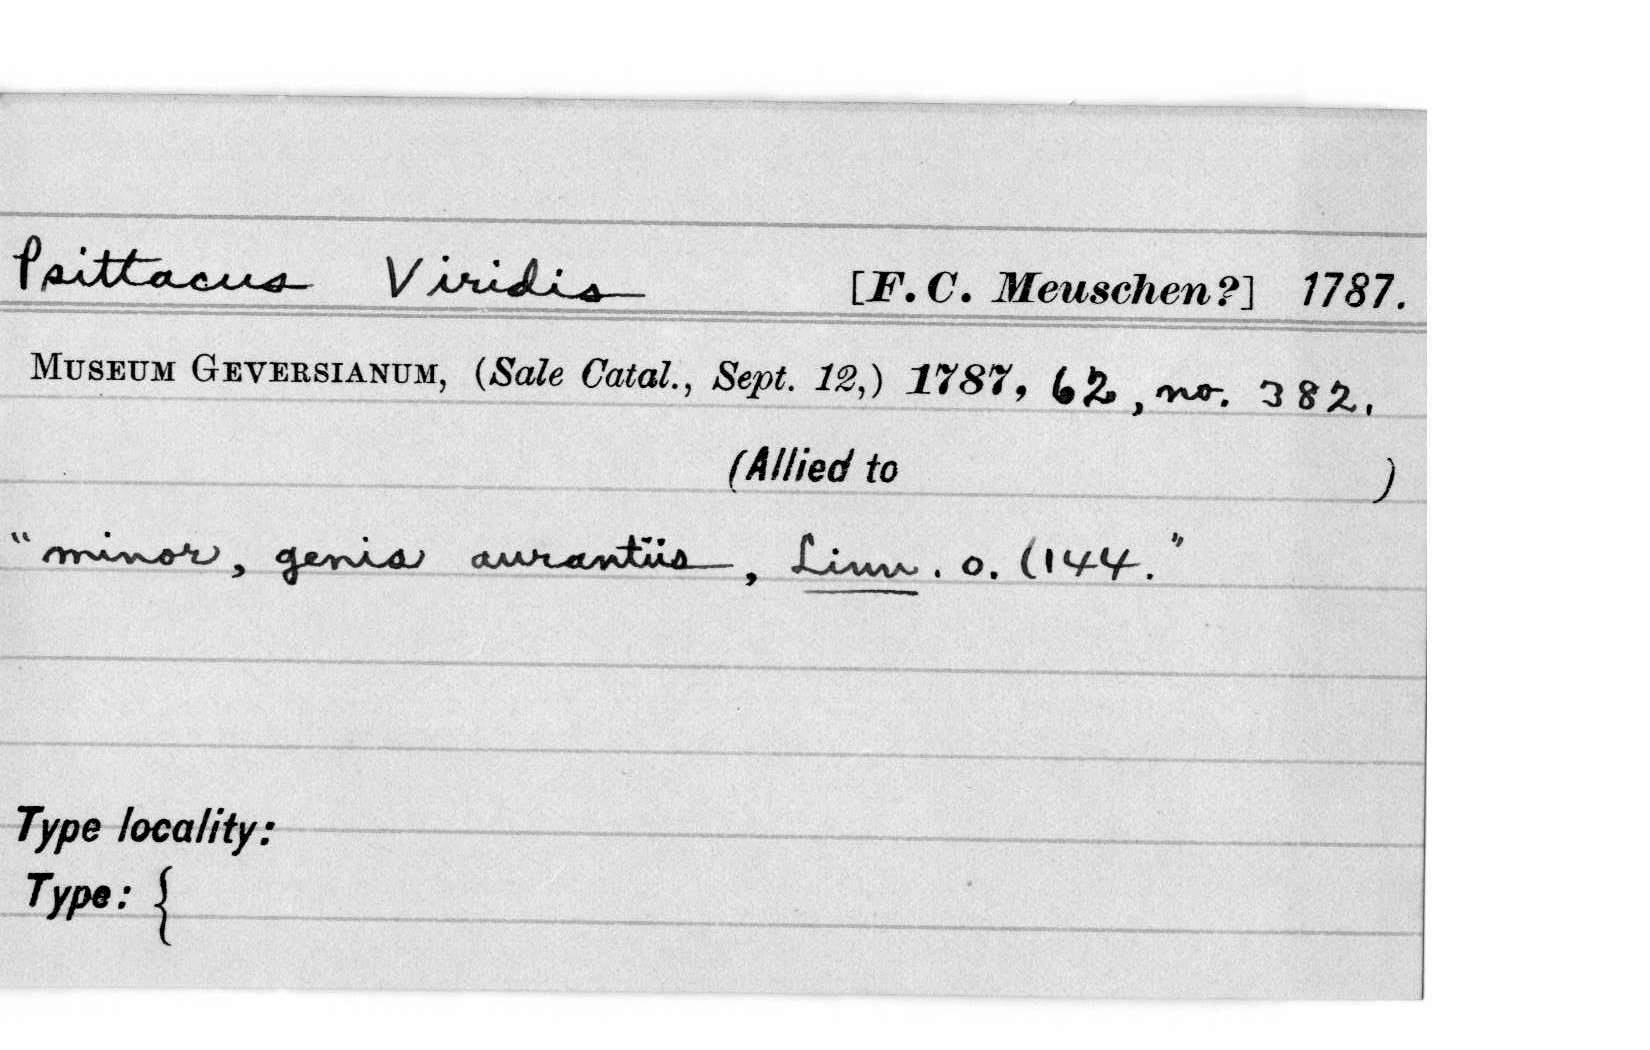 Psittacus Viridis [F. C. Meuschen?] 1787.
MUSEUM GEVERSIANUM, (Sale Catal., Sept. 12,) 1787, 62, no. 382.
(Allied to )
"minor, genis aurantiis, Linn. o. (144."
Type locality:
Type: {